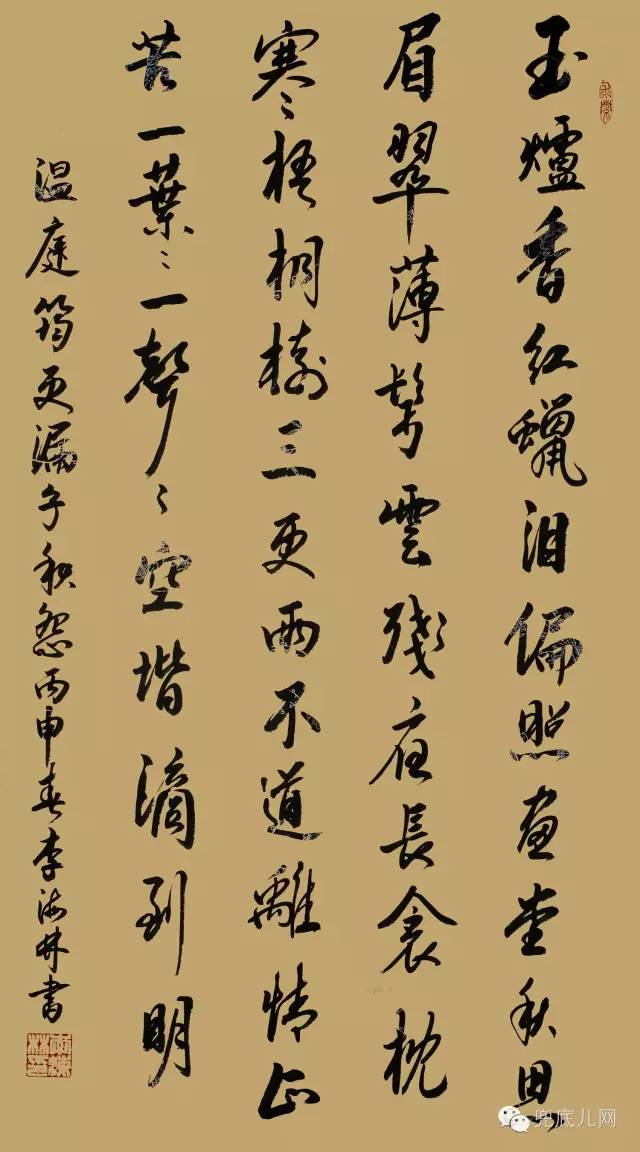 玉爐香红蠟泪偏照畫堂秋思
眉翠薄鬢雲殘夜長衾枕
寒〻梧桐樹三更雨不道離情正
苦一葉〻一聲〻空堦滴到明
温庭筠更漏子秋怨丙申春李海林書
兜底儿网